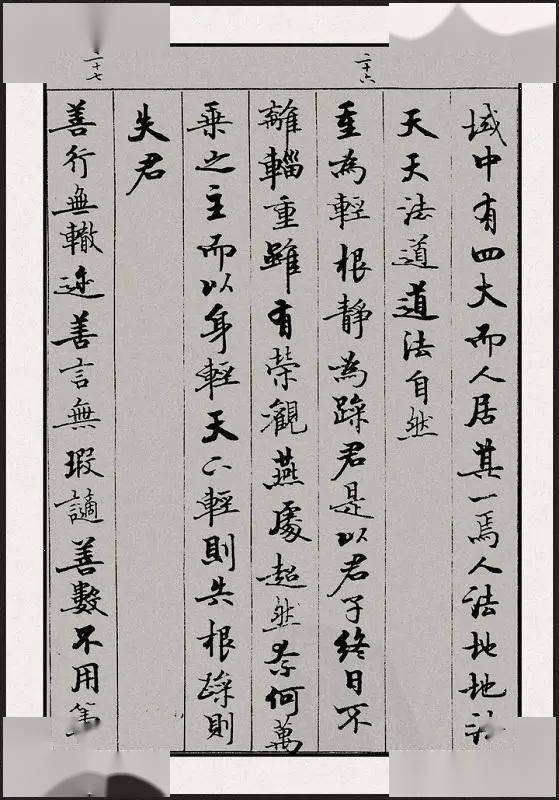 域中有四大而人居其一焉人法地地法
天天法道道法自然
二十六
重為輕根靜為躁君是以君子終日不
離輜重雖有榮觀燕處超然奈何萬
乘之主而以身輕天下輕則失根躁則
失君
二十七
善行無轍迹善言無瑕讁善數不用筭